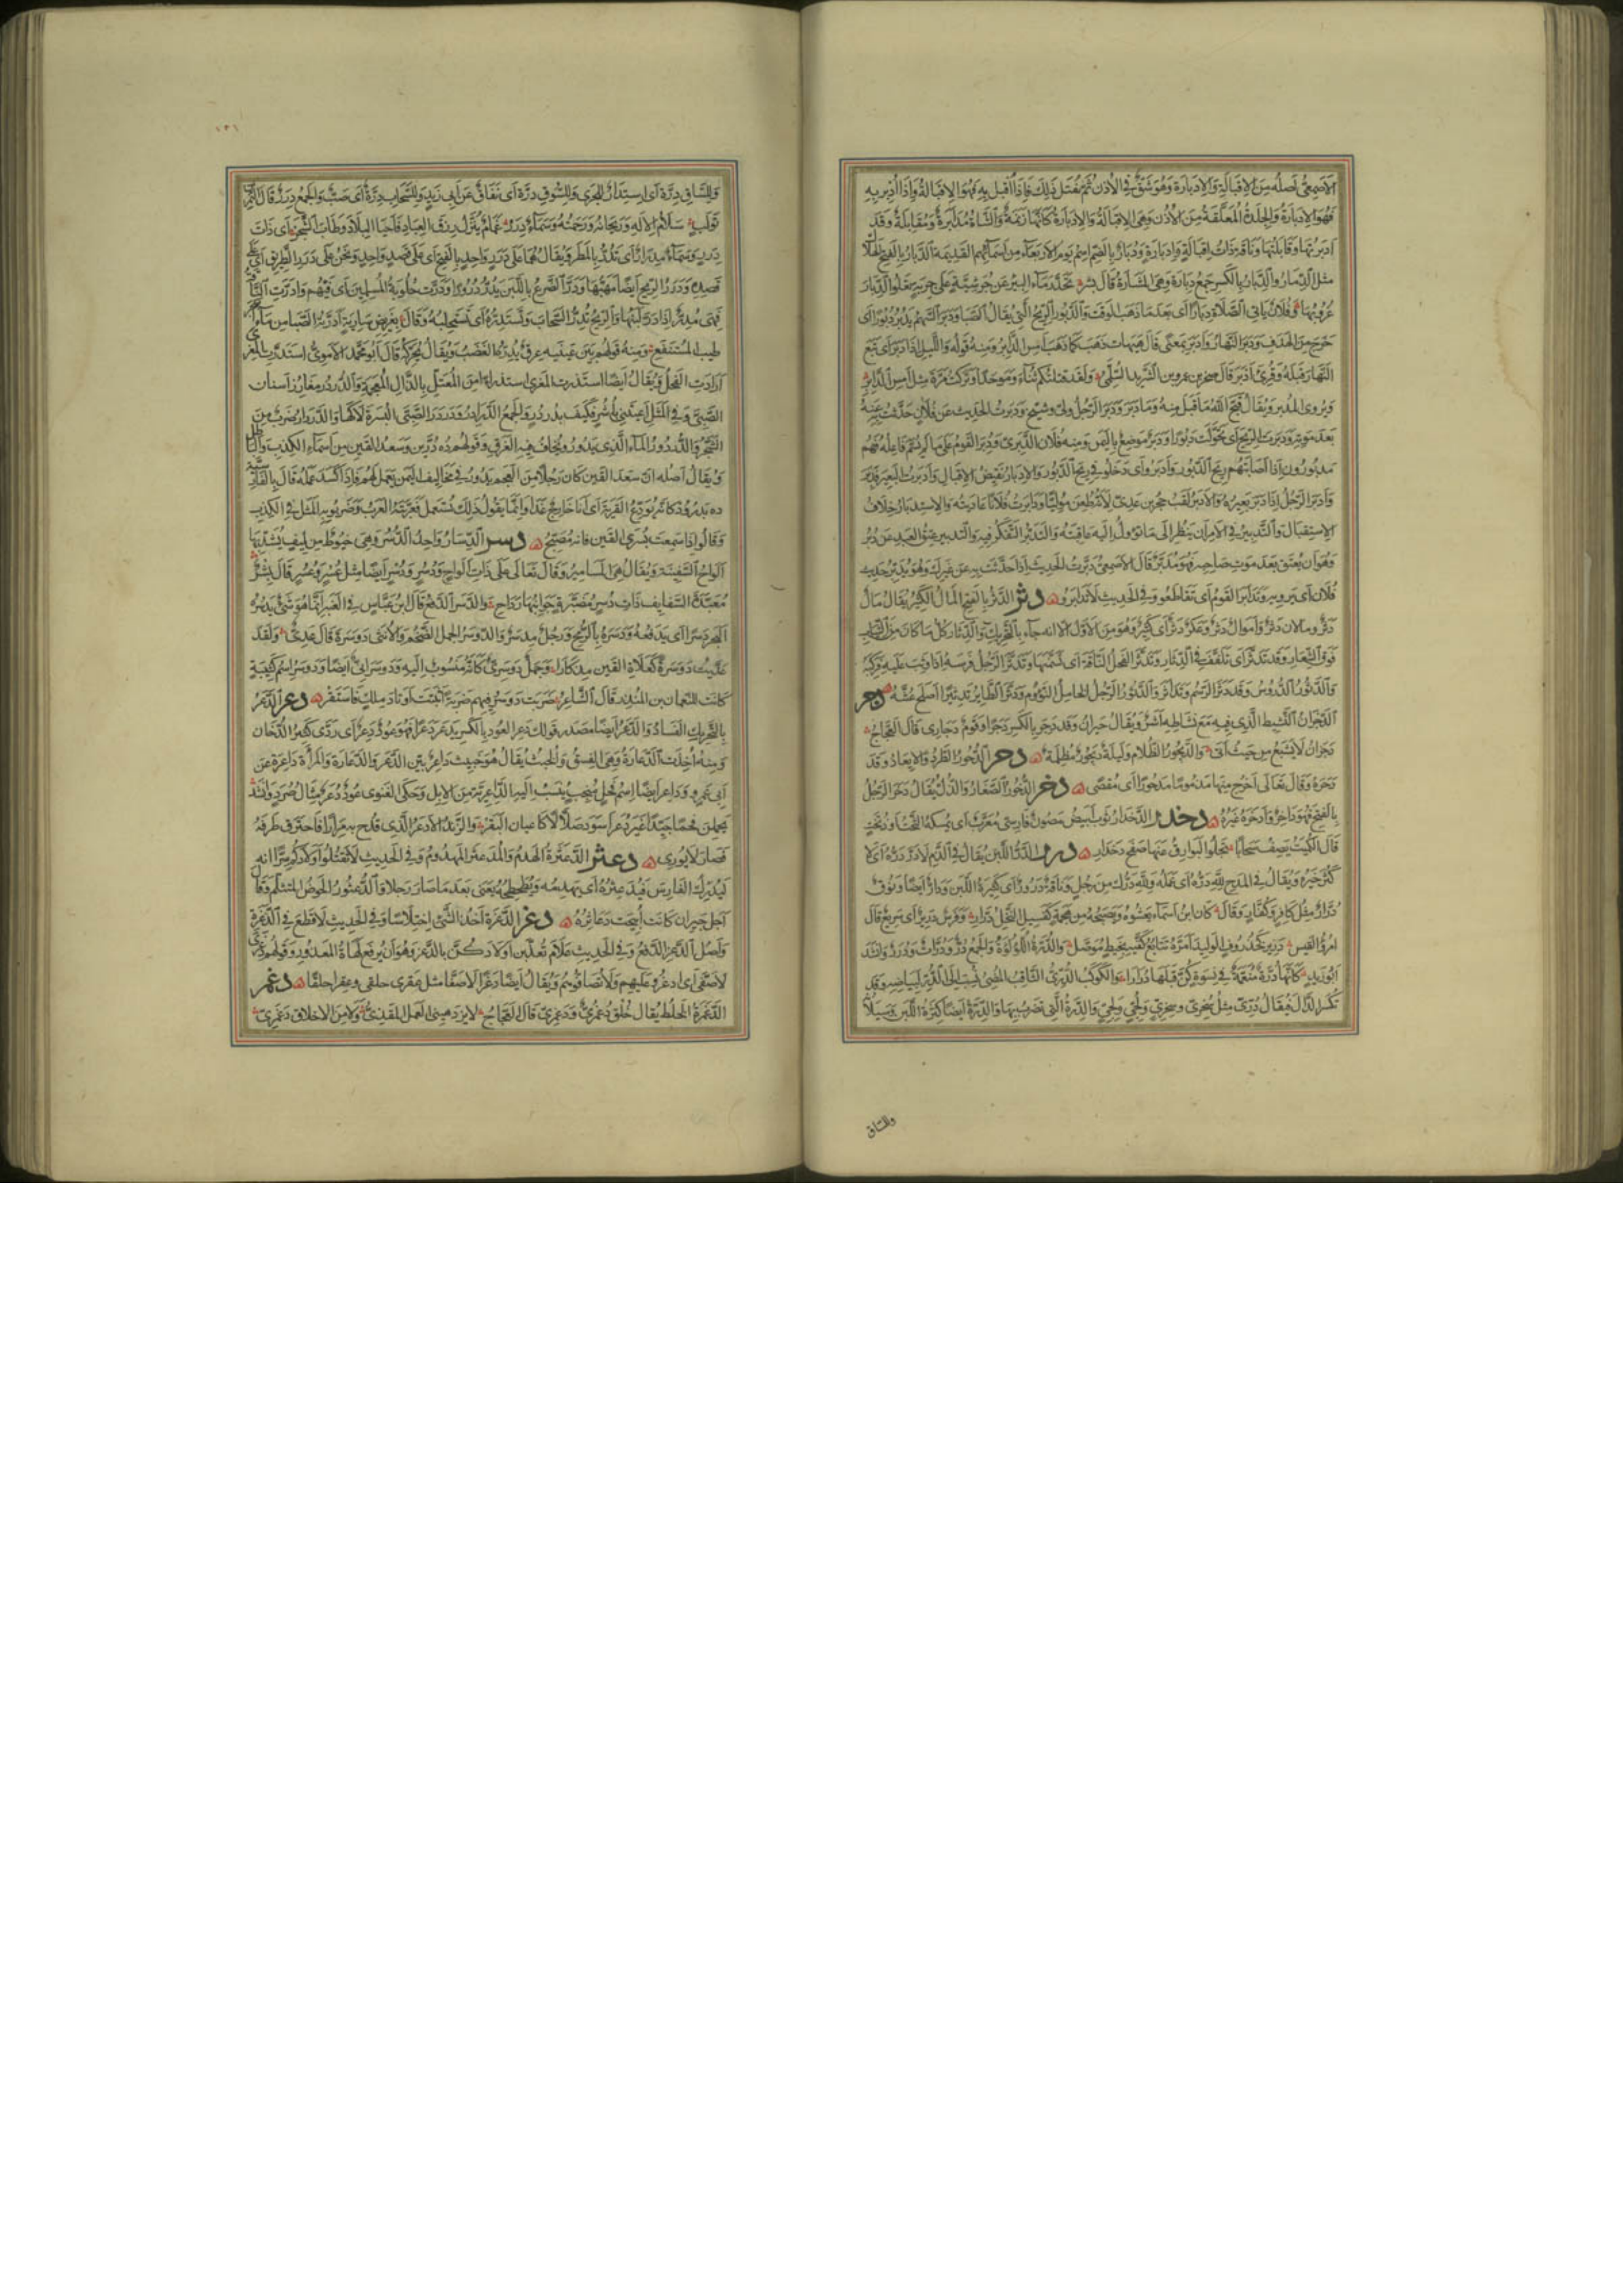 الأصمعي أصله من الإقبالة والإدبارة وهو شق في الأذن ثم يفتل ذلك فاذا أقبل به فهو الإقبالة واذا أدبر به
فهو الإدبارة والجلدة المعلقة من الأذن وهي الإقبالة والإدبارة كأنها زنمة والشاة مدابرة ومقابلة وقد
ادبرتها وقابلتها وناقة ذات إقبالة وإدبارة ودبار بالضم اسم يوم الأربعاء من أسمائهم القديمة والدبار بالفتح الهلاك
مثل الدمار والدبار بالكسر جمع دبارة وهي المشارة قال بشر تحدر ماء البئر عن جرشية على جربة يعلو الدبار
غروبها وفلان يأتي الصلاة دبارا أي بعد ما ذهب الوقت والدبور الريح التي يقابل الصبا ودبر السهم يدبر دبورا أي
خرج من الهدف ودبر النهار وأدبر بمعنى قال هيهات ذهب كما ذهب امس الدابر ومنه قوله والليل اذا دبر اي تبع
النهار قبله وقرئ أدبر قال صخر بن عمرو بن الشريد السلمي ولقد قتلتكم ثناء وموحدا وتركت مرة مثل امس الدابر
ويروى المدبر ويقال قبح الله ما قبل منه وما دبر ودبر الرجل ولى وشيخ ودبرت الحديث عن فلان حدثت به عنه
بعد موته ودبرت الريح اي تحولت دبورا ودبر موضع باليمن ومنه فلان الدبري ودبر القوم على ما لم يسم فاعله فهم
مدبورون اذا اصابتهم ريح الدبور وادبروا اي دخلوا في ريح الدبور والإدبار نقيض الإقبال وأدبرت البعير فدبر
وأدبر الرجل اذا دبر بعيره والادبر لقب حجر بن عدي لانه طعن موليا ودابرت فلانا عاديته والاستدبار خلاف
الاستقبال والتدبير في الامر ان ينظر الى ما تؤول اليه عاقبته والتدبر التفكر فيه والتدبير عتق العبد عن دبر
وهو ان يعتق بعد موت صاحبه فهو مدبر قال الاصمعي دبرت الحديث اذا حدثت به عن غيرك وهو يدبر حديث
فلان اي يرويه وتدابر القوم اي تقاطعوا وفي الحديث لا تدابروا دثر الدثر بالفتح المال الكثير يقال مال
دثر ومالان دثر واموال دثر وعكر دثر اي كثير وهو من الاول الا انه جاء بالتحريك والدثار كل ما كان من الثياب
فوق الشعار وقد تدثر اي تلفف في الدثار وتدثر الفحل الناقة اي تسنمها وتدثر الرجل فرسه اذا وثب عليه فركبه
والدثور الدروس وقد دثر الرسم وتداثر والدثور الرجل الخامل النؤوم ودثر الطاير تدثيرا اصلح عشه دجر
الدجران النشيط الذي فيه مع نشاطه اشر ويقال حيران وقد دجر بالكسر دجرا وقوم دجارى قال العجاج
دجران لا يشبع من حيث أتى والديجور الظلام وليلة ديجور مظلمة دحر الدحور الطرد والابعاد وقد
دحره وقال تعالى اخرج منها مذموما مدحورا اي مقصى دخر الدخور الصغار والذل يقال دخر الرجل
بالفتح فهو داخر وادخره غيره دخدر الدخدار ثوب ابيض مصون فارسي معرب اي يمسكه التخت اي ذو تخت
قال الكميت يصف سحابا تجلو البوارق عنها صفح دخدار درر الدر اللبن يقال في الذم لا در دره اي لا
كثر خيره ويقال في المدح لله دره اي عمله ولله درك من رجل وناقة درور اي كثيرة اللبن ودار ايضا ونوق
درار مثل كافر وكفار وقال كان ابن اسماء يعشوه ويصبحه من هجمة كفسيل النخل درار وفرس درير اي سريع قال
امرؤ القيس درير كخذروف الوليد امره تتابع كفيه بخيط موصل والدرة اللؤلؤة والجمع در ودرات ودرر وانشد
ابو زيد كأنها درة منعمة في نسوة كن قبلها دررا والكوكب الدري الثاقب المضئ نسب الى الدر لبياضه وقد
تكسر الدال فيقال دري مثل سخري وسخري ولجي ولجي والدرة التي تضرب بها والدرة ايضا كثرة اللبن وسيلانه
والساق
١٣١
وللساق درة اي استدرار للجري وللسوق درة اي نفاق عن ابي زيد وللسحاب درة اي صب والجمع درر قال النمر بن
تولب سلام الاله وريحانه ورحمته وسماء درر غمام ينزل رزق العباد فاحيا البلاد وطاب الشجر اي ذات
درر وسماء مدرار اي تدر بالمطر ويقال هما على درر واحد بالفتح اي على قصد واحد ونحن على درر الطريق اي على
قصده ودرر الريح ايضا مهبها ودر الضرع باللبن يدر درورا ودرت حلوبة المسلمين اي فيئهم وادرت الناقة
فهي مدر اذا در لبنها والريح تدر السحاب وتستدره اي تستحلبه وقال بغريض سارية ادرته الصبا من ماء اسجر
طيب المستنقع ومنه قولهم بين عينيه عرق يدره الغضب ويقال يحركه قال ابو محمد الاموي استدرت المعزى
ارادت الفحل ويقال ايضا استذرت المعزى استذراء من المعتل بالذال المعجمة والدردر مغارز اسنان
الصبي وفي المثل اعييتني بأشر فكيف بدردر والجمع الدرادر ودردر الصبي البسرة لاكها والدردار ضرب من
الشجر والدردور الماء الذي يدور ويخاف فيه الغرق وقولهم ده درين وسعد القين من اسماء الكذب والباطل
ويقال اصله ان سعد القين كان رجلا من العجم يدور في مخاليف اليمن يعمل لهم فاذا كسد عمله قال بالفارسية
ده بدرود كانه يودع القرية اي انا خارج غدا وانما يقول ذلك ليستعمل فعربته العرب وضربوا به المثل في الكذب
وقالوا اذا سمعت بسرى القين فانه مصبح دسر الدسار واحد الدسر وهي خيوط من ليف يشد بها
الواح السفينة ويقال هي المسامير وقال تعالى على ذات الواح ودسر ودسر ايضا مثل عسر وعسر قال بشر
معبدة السقايف ذات دسر مضبرة جوانبها رداح والدسر الدفع قال ابن عباس في العنبر انما هو شئ يدسره
البحر دسرا اي يدفعه ودسره بالرمح ورجل مدسر والدوسر الجمل الضخم والانثى دوسرة قال عدي ولقد
عديت دوسرة كعلاة القين مذكارا وجمل دوسري كانه منسوب اليه ودوسراني ايضا ودوسر اسم كتيبة
كانت للنعمان بن المنذر قال الشاعر ضربت دوسر فيهم ضربة اثبتت اوتاد ملك فاستقر دعر الدعر
بالتحريك الفساد والدعر ايضا مصدر قولك دعر العود بالكسر يدعر دعرا فهو عود دعر اي ردي كثير الدخان
ومنه اخذت الدعارة وهي الفسق والخبث يقال هو خبيث داعر بين الدعر والدعارة والمراة داعرة عن
ابي عمرو وداعر ايضا اسم فحل منجب ينسب اليه الداعرية من الابل وحكى الغنوي عود دعر مثال صرد وانشد
يحملن فحما جيدا غير دعر اسود صلالا كاعيان البقر والزند الادعر الذي قدح به مرارا فاحترق طرفه
فصار لا يوري دعثر الدعثرة الهدم والمدعثر المهدوم وفي الحديث لا تقتلوا اولادكم سرا انه
ليدرك الفارس فيدعثره اي يهدمه ويطحطحه يعني بعد ما صار رجلا والدعثور الحوض المتثلم وقال
اجل جير ان كانت ابيحت دعاثره دغر الدغرة اخذ الشئ اختلاسا وفي الحديث لا قطع في الدغرة
واصل الدغر الدفع وفي الحديث علام تعذبن اولادكن بالدغر وهو ان يرفع لهاة المعذور وقولهم دغرى
لا صفى اي ادغروا عليهم ولا تصافوهم ويقال ايضا دغرا لا صفا مثل عقرى حلقى وعقرا حلقا دغمر
الدغمرة الخلط يقال خلق دغمري ودغمري قال العجاج لا يزدهيني العمل المقذي ولا من الاخلاق دغمري